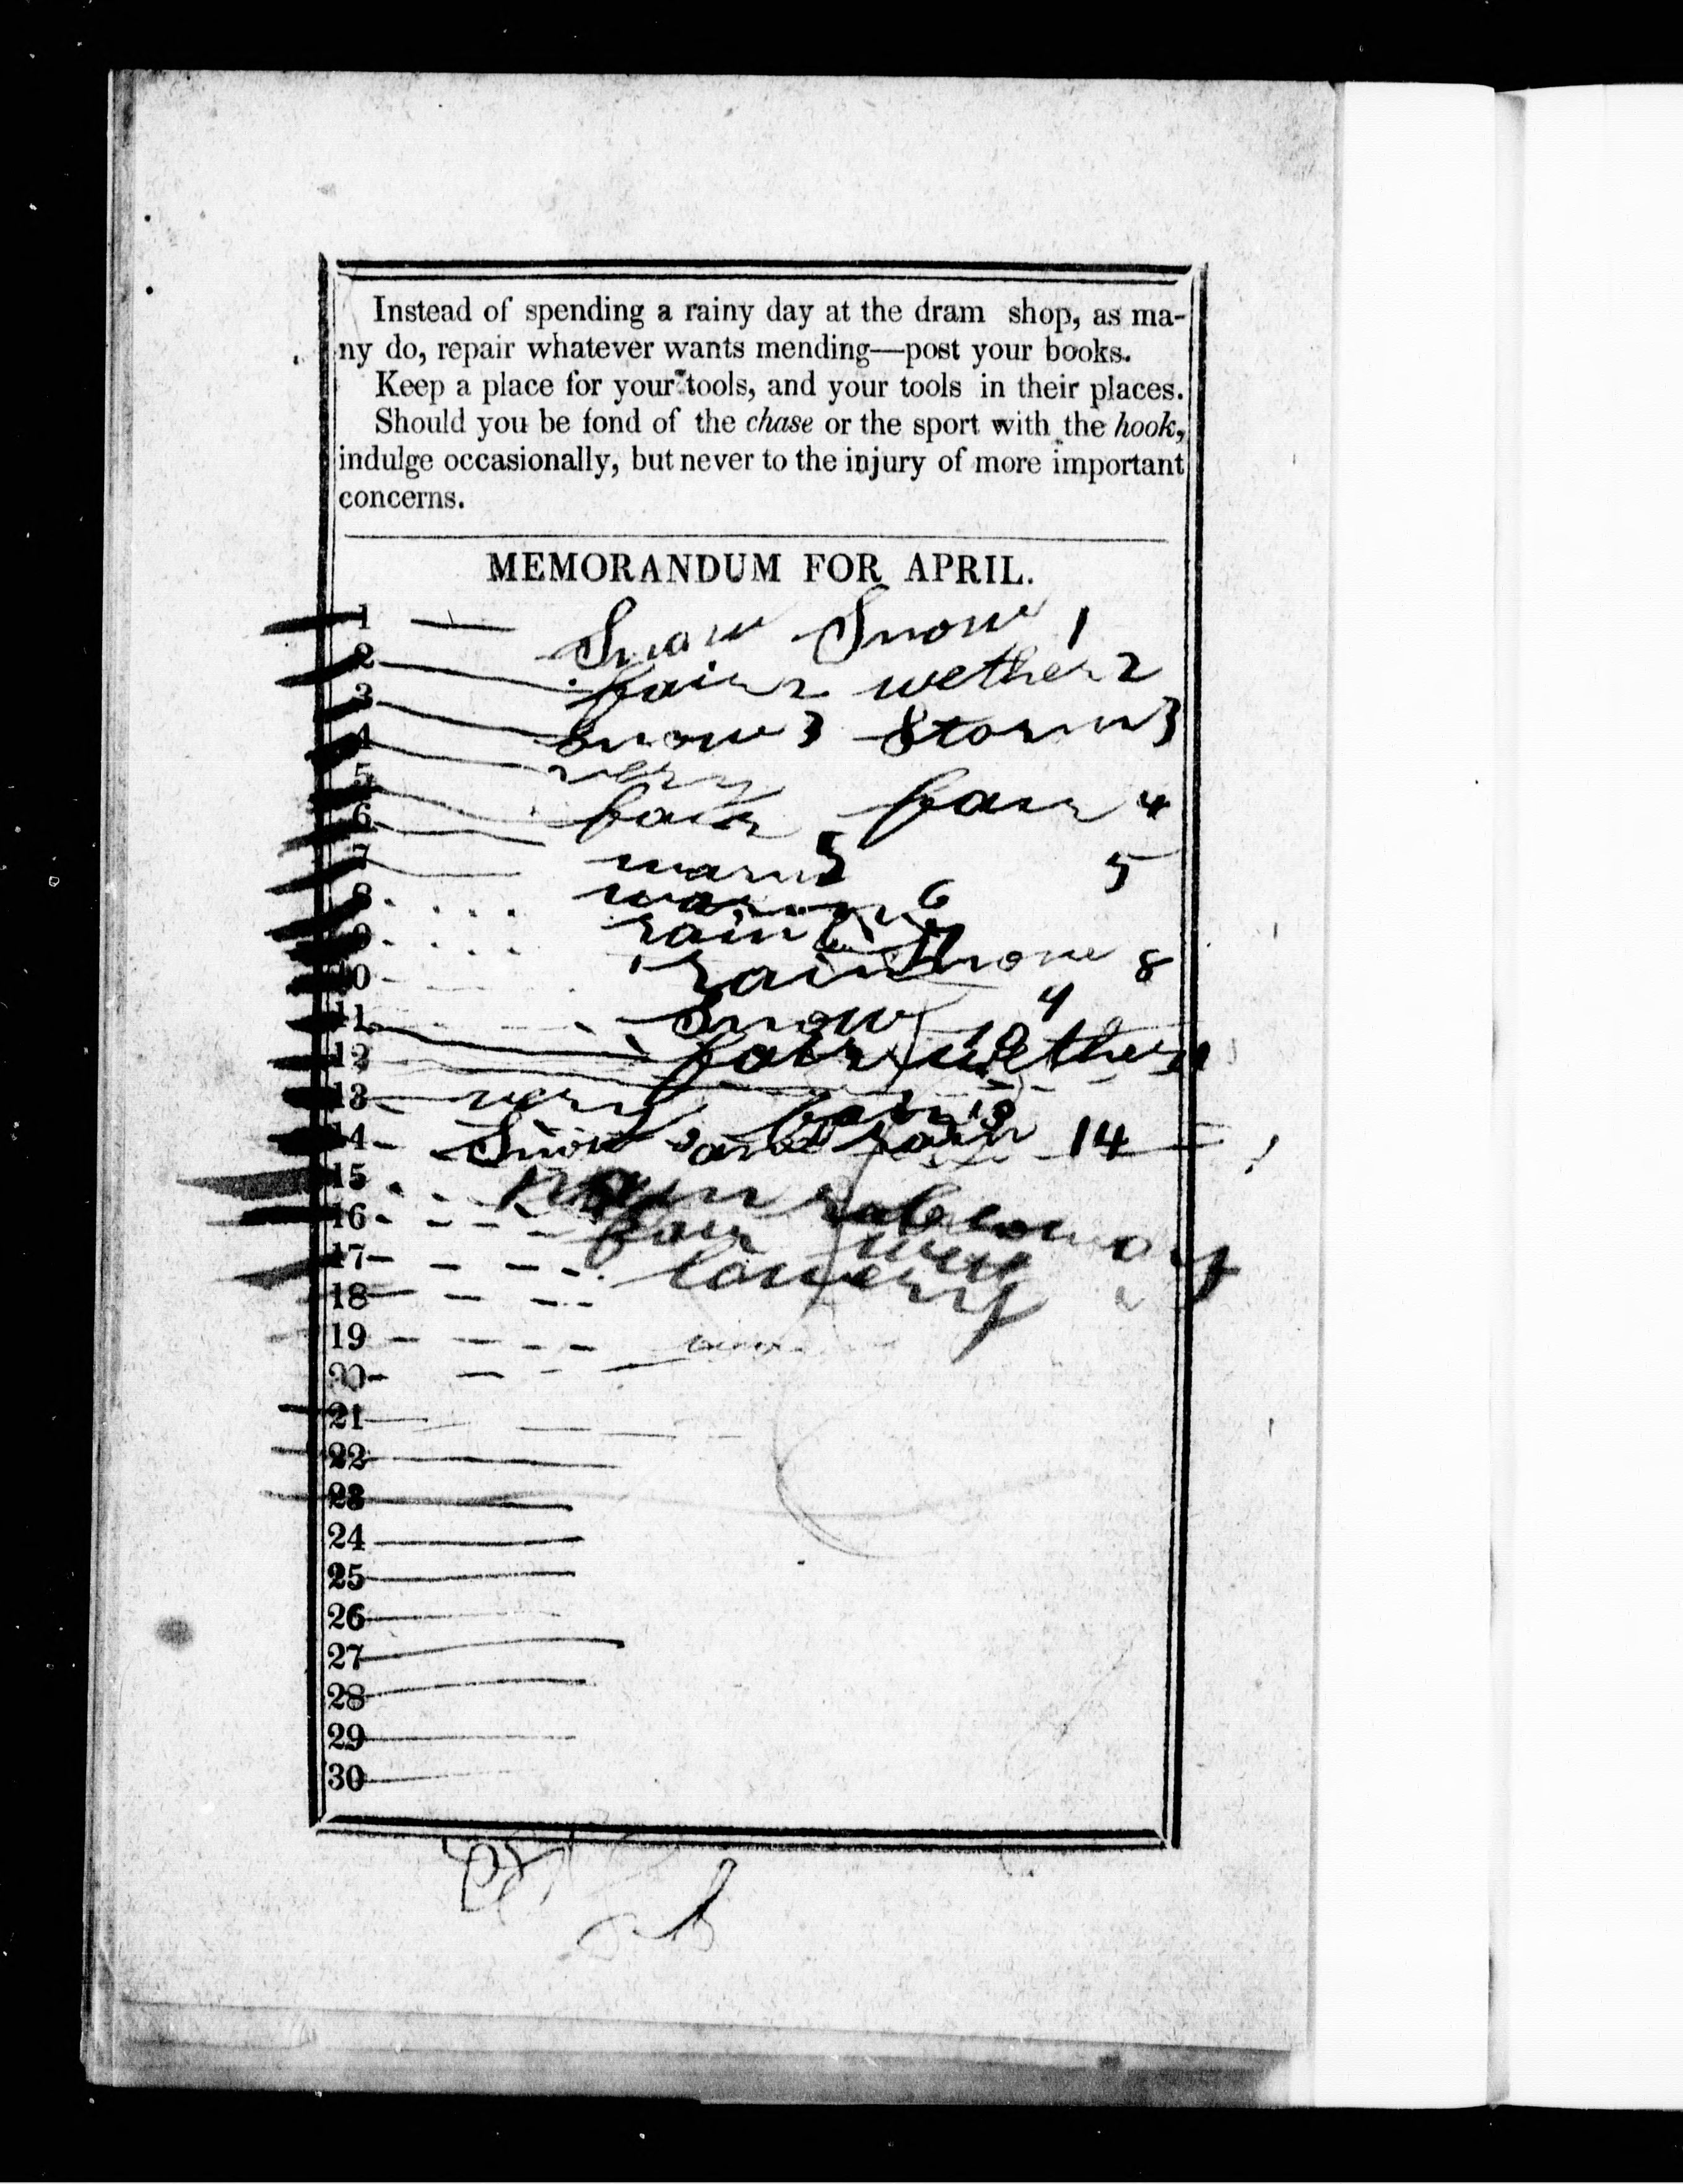 Instead of spending a rainy day at the dram shop, as ma-
ny do, repair whatever wants mending—post your books.
Keep a place for your tools, and your tools in their places.
Should you be fond of the chase or the sport with the hook,
indulge occasionally, but never to the injury of more important
concerns.
MEMORANDUM FOR APRIL.
1 — Snow Snow 1
2 fair 2 wether 2
3 Snow 3 Storm 3
4 very
5 fair fair 4
6
7 warm 5 5
8 warm 6
9 rain
10 rain Snow 8
11 Snow 9
12 fair wether 11
13 very fair 13
14 Snow and rain 14
15
16 fair
17 lowery
18
19
20
21
22
23
24
25
26
27
28
29
30